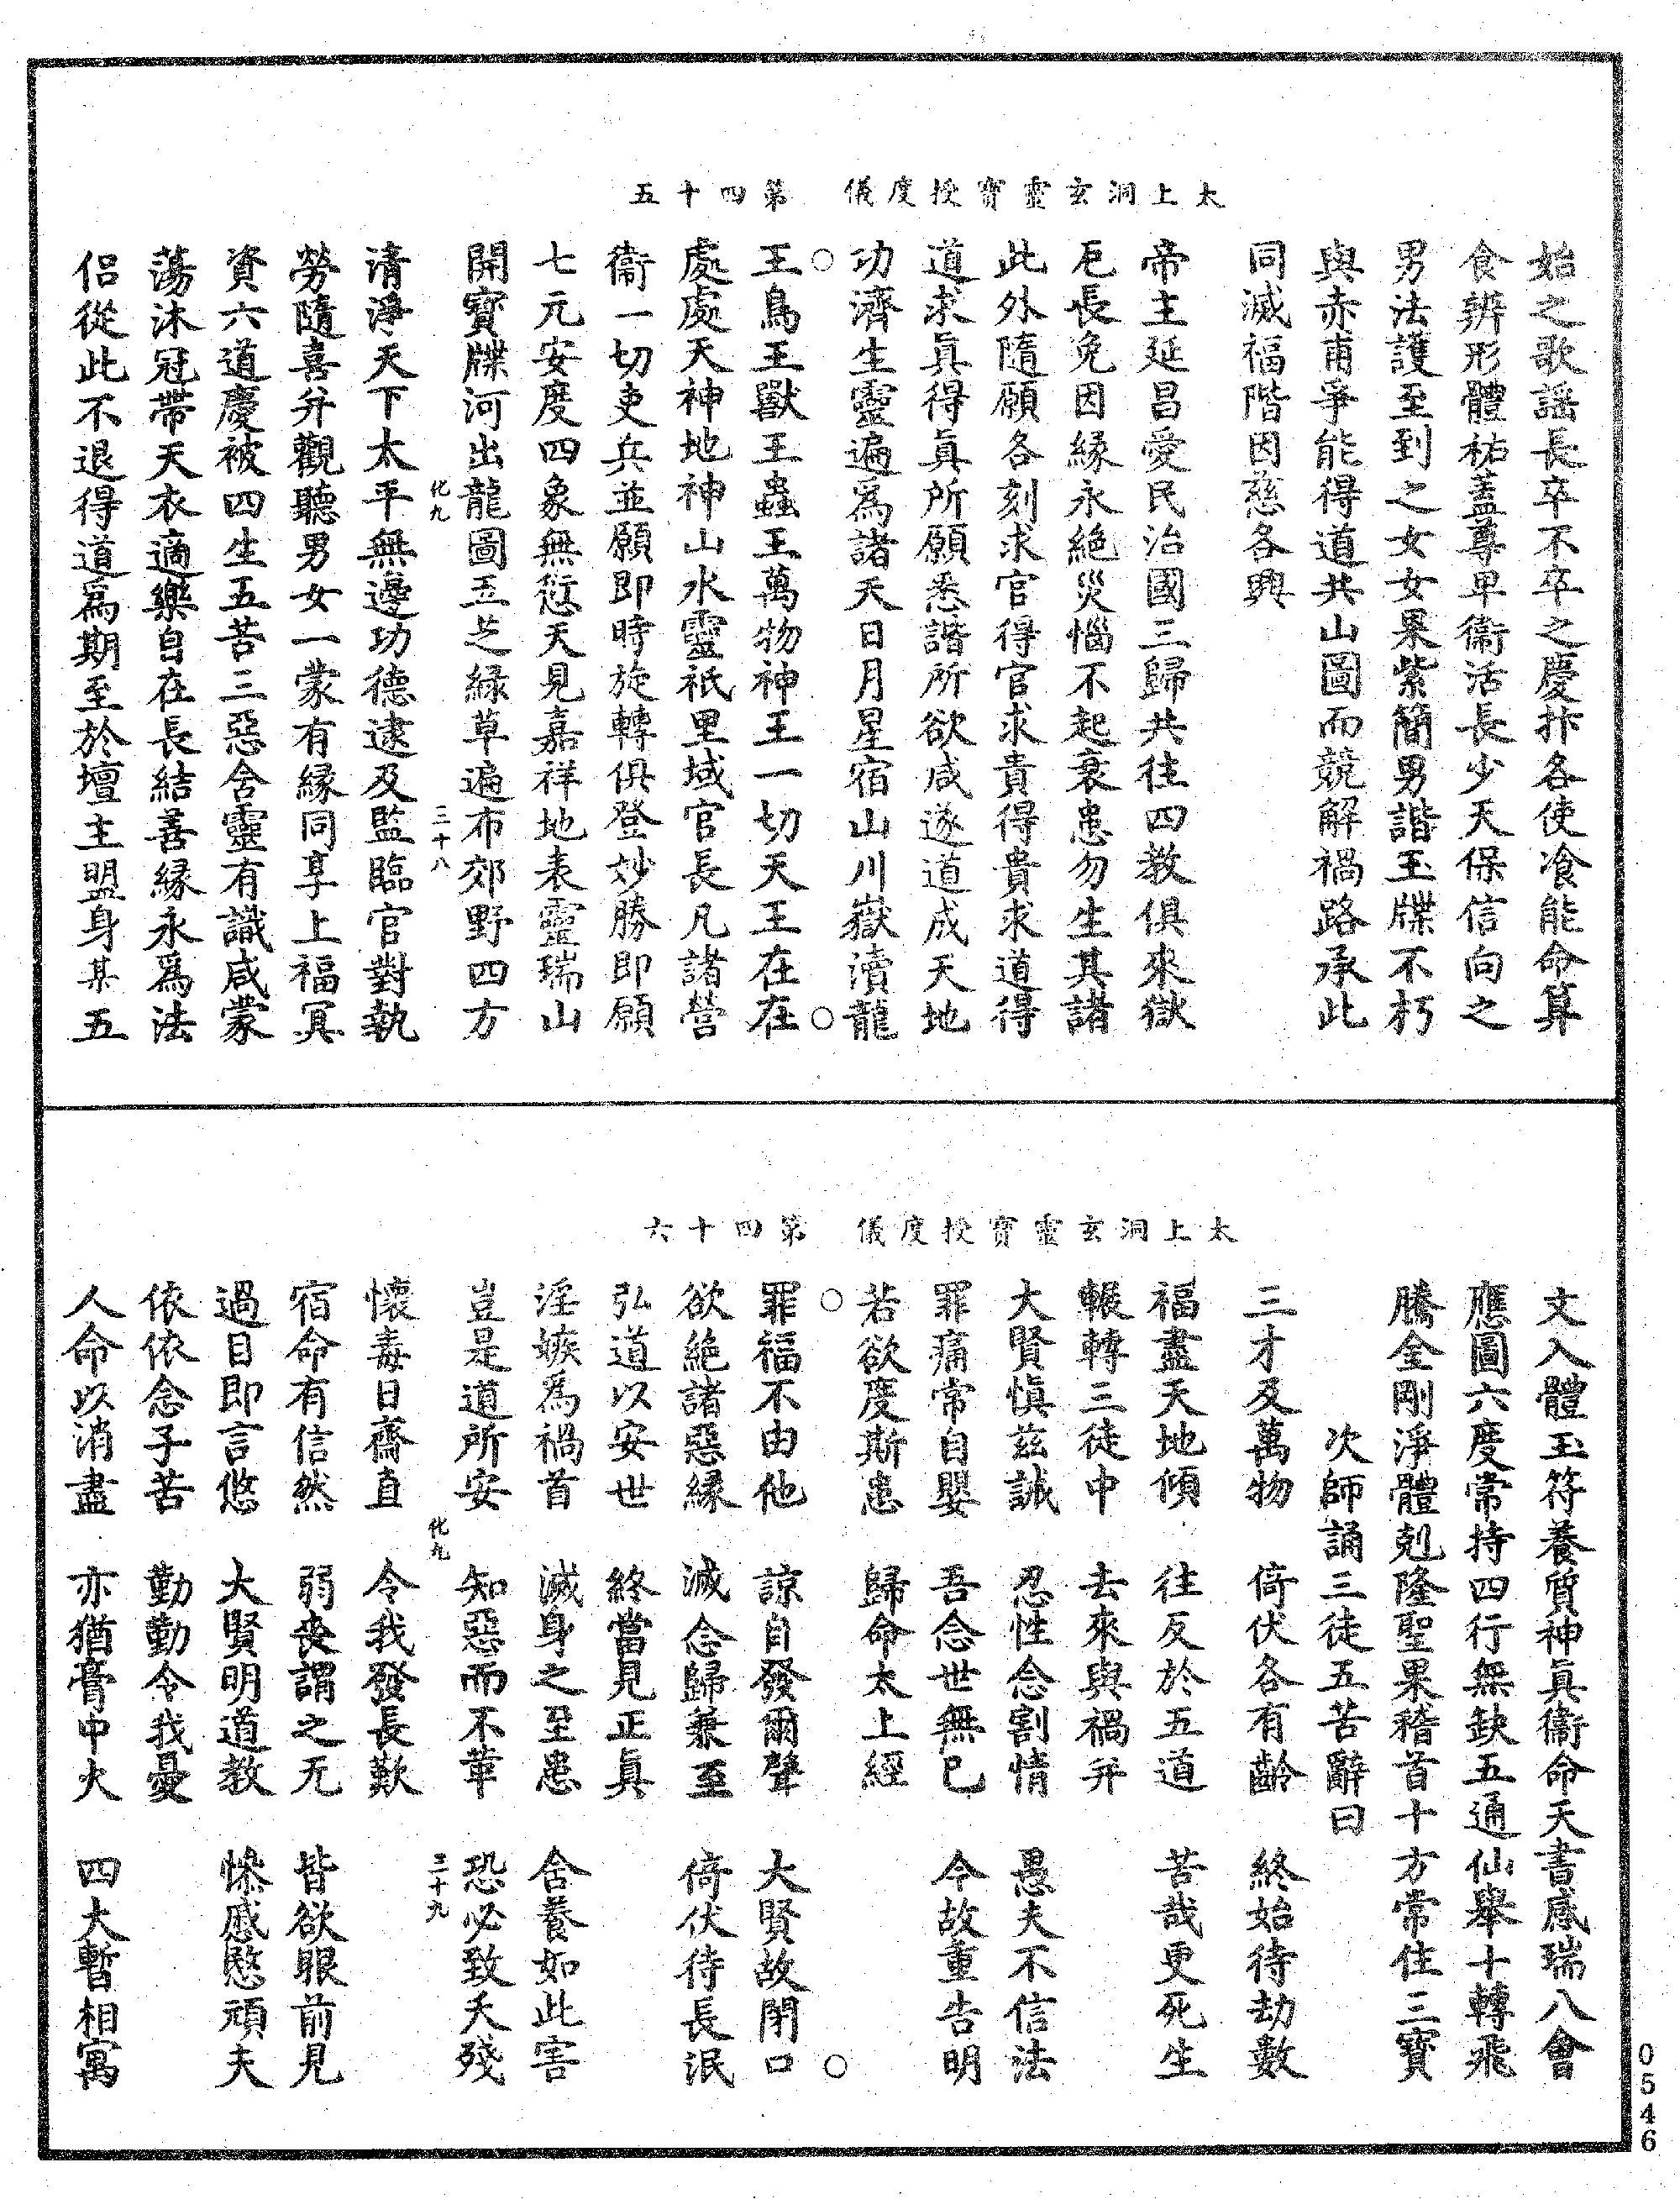 太上洞玄靈寶授度儀　第四十五
始之歌謡長卒不卒之慶抃各使飡能命算
食辨形體祐蓋尊卑衞活長少天保信向之
男法護至到之女女果紫簡男諧玉牒不朽
與赤甫爭能得道共山圖而競解禍路承此
同滅福階因慈各興
帝主延昌愛民治國三歸共往四教俱來獄
厄長免因緣永絶災惱不起衰患勿生其諸
此外隨願各刻求官得官求貴得貴求道得
道求眞得眞所願悉諧所欲咸遂道成天地
功濟生靈遍爲諸天日月星宿山川嶽瀆龍
王鳥王獸王蟲王萬物神王一切天王在在
處處天神地神山水靈祇里域官長凡諸營
衞一切吏兵並願即時旋轉俱登妙勝即願
七元安度四象無愆天見嘉祥地表靈瑞山
開寶牒河出龍圖五芝緑草遍布郊野四方
化九　三十八
清淨天下太平無邊功德逮及監臨官對執
勞隨喜并觀聽男女一蒙有緣同享上福冥
資六道慶被四生五苦三惡含靈有識咸蒙
蕩沐冠帶天衣適樂自在長結善緣永爲法
侣從此不退得道爲期至於壇主盟身某五
太上洞玄靈寶授度儀　第四十六
文入體玉符養質神眞衞命天書感瑞八會
應圖六度常持四行無缺五通仙舉十轉飛
騰全剛淨體剋隆聖果稽首十方常住三寶
次師誦三徒五苦辭曰
三才及萬物　倚伏各有齡　終始待劫數
福盡天地傾　往反於五道　苦哉更死生
輾轉三徒中　去來與禍并
大賢愼兹誡　忍性念割情　愚夫不信法
罪痛常自嬰　吾念世無已　今故重告明
若欲度斯患　歸命太上經
罪福不由他　諒自發爾聲　大賢故閉口
欲絶諸惡緣　滅念歸兼至　倚伏待長泯
弘道以安世　終當見正眞
淫嫉爲禍首　滅身之至患　含養如此害
豈是道所安　知惡而不革　恐必致夭殘
化九　三十九
懷毒日齋直　令我發長歎
宿命有信然　弱喪謂之无　皆欲眼前見
過目即言悠　大賢明道教　慘慼愍頑夫
依依念子苦　勤勤令我憂
人命以消盡　亦猶膏中火　四大暫相寓
0546